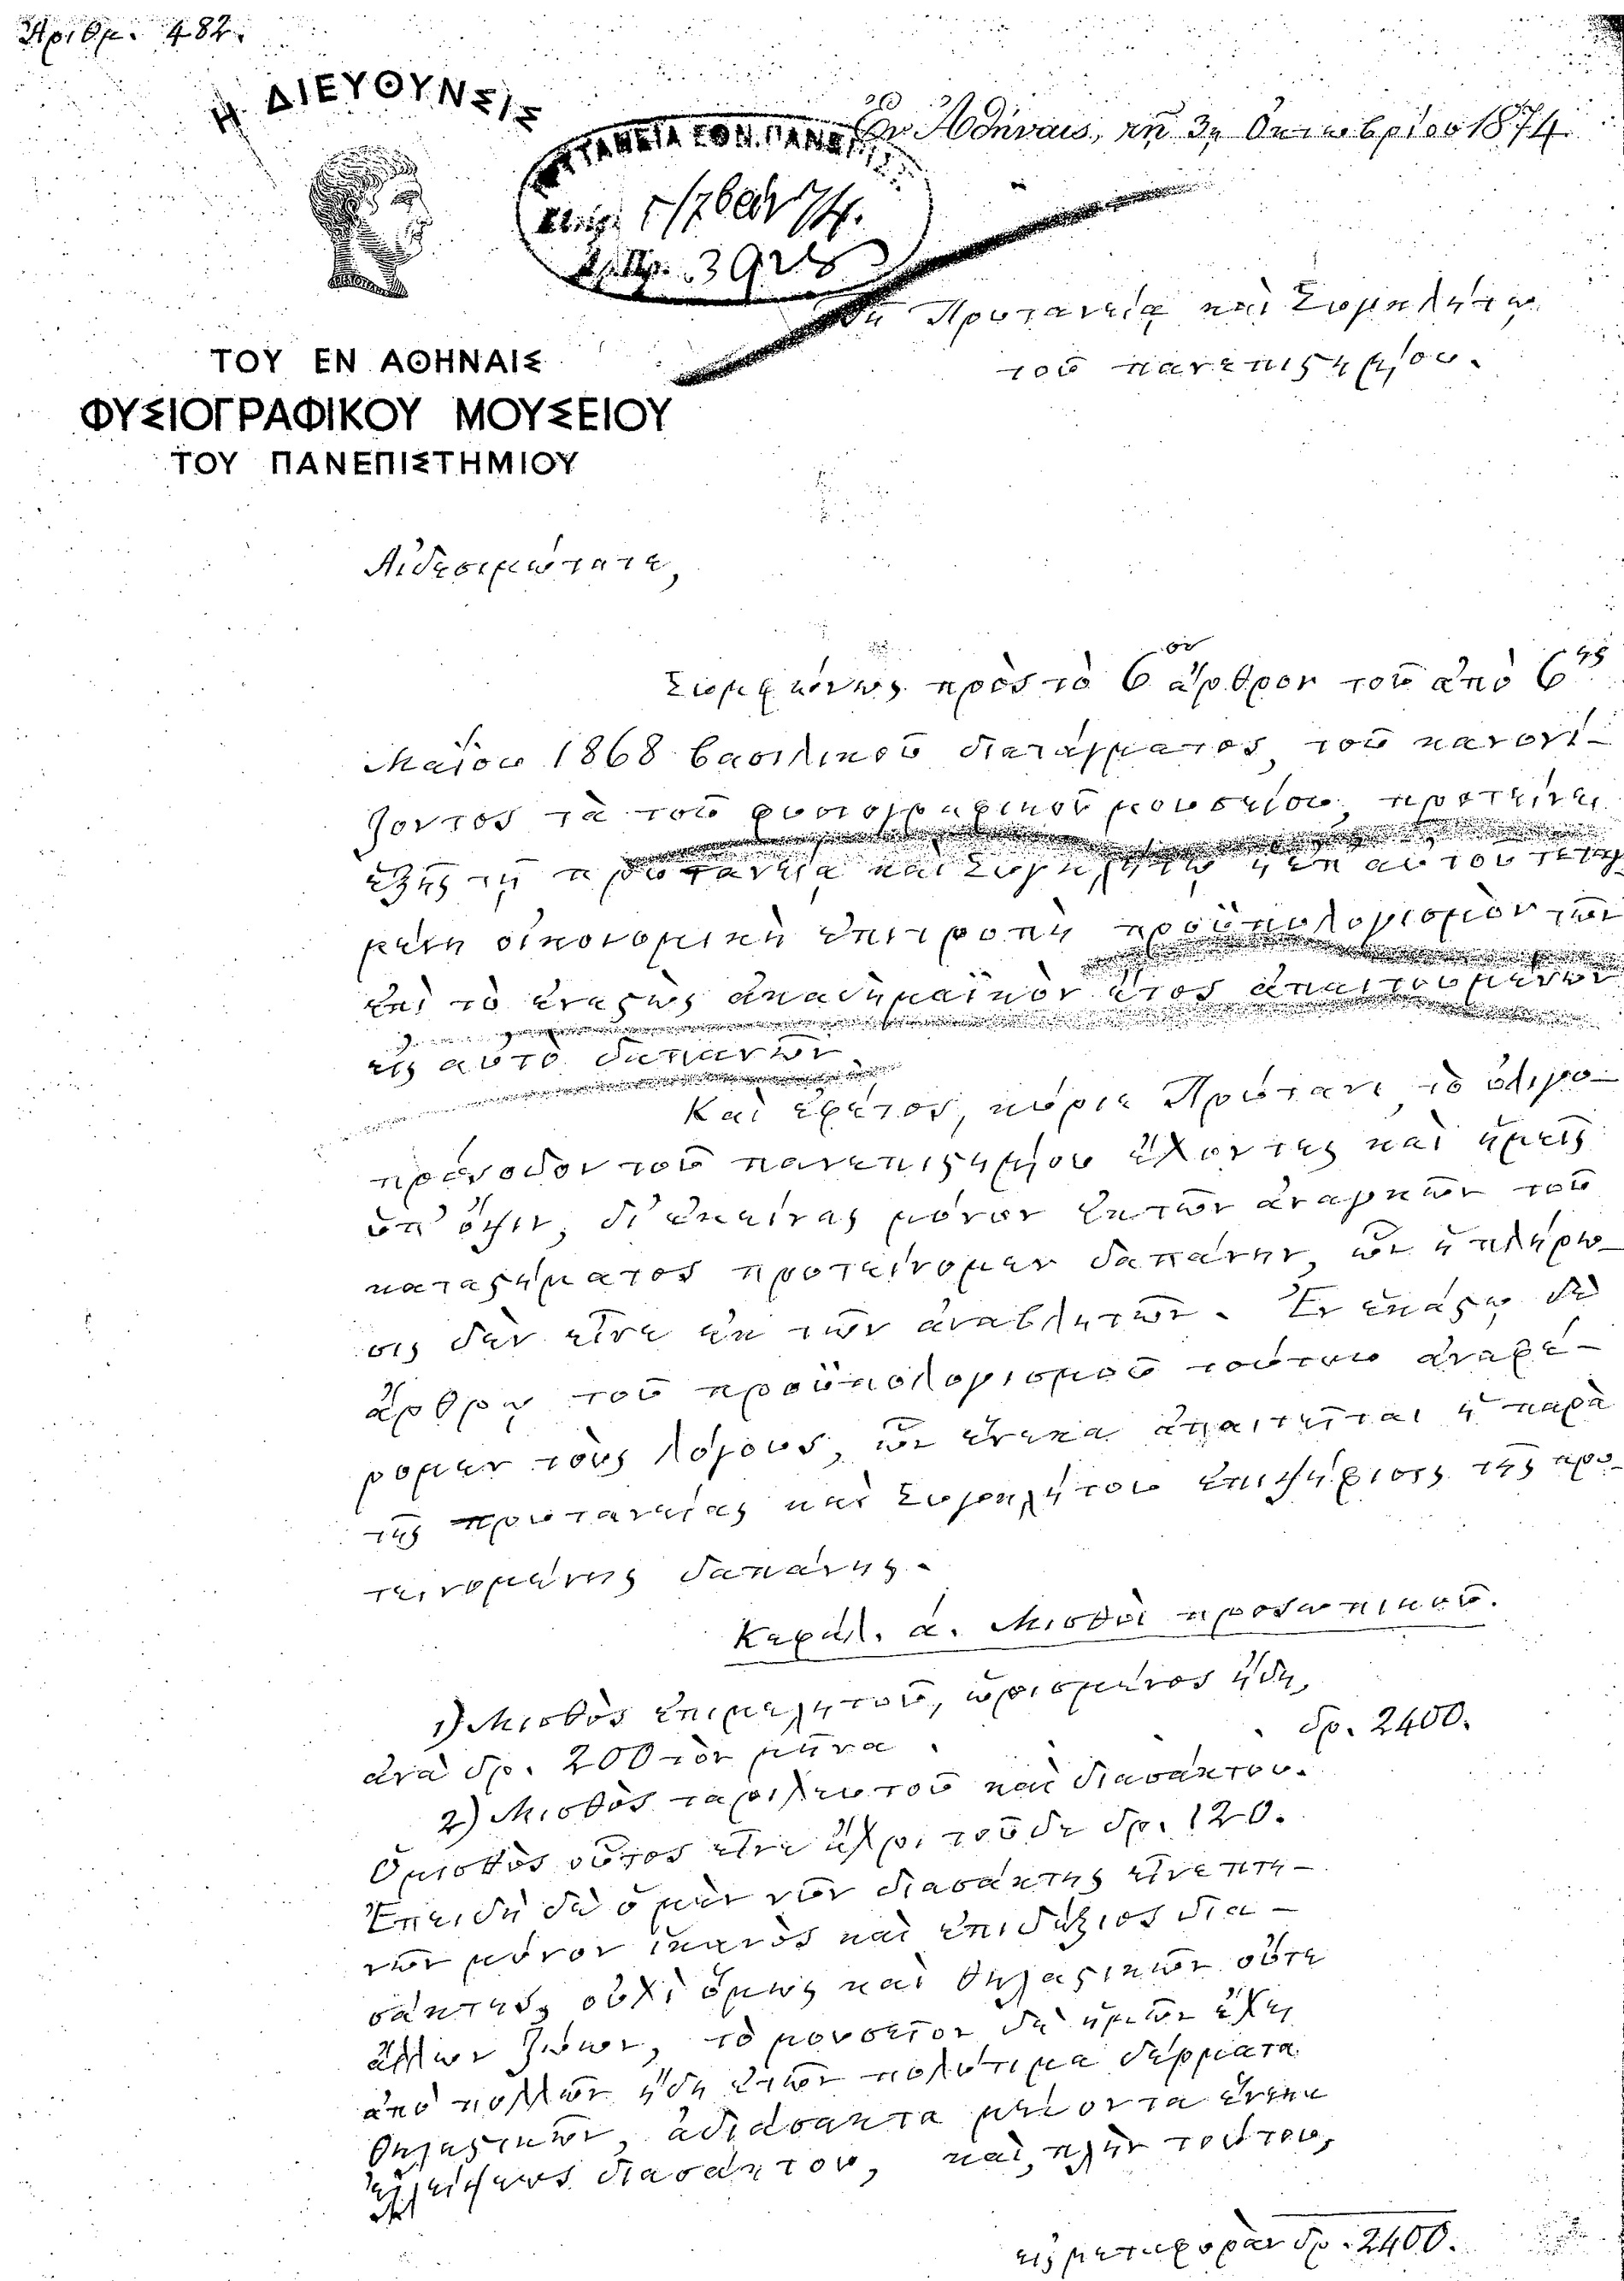 Ἀριθμ. 482.
Η ΔΙΕΥΘΥΝΣΙΣ
Ἐν Ἀθήναις, τῇ 3ῃ Ὀκτωβρίου 1874.
ΠΡΥΤΑΝΕΙΑ ΕΘΝ. ΠΑΝΕΠΙΣΤ.
Ἀρ. Πρ. 3928
Τῇ Πρυτανείᾳ καὶ Συγκλήτῳ
τοῦ πανεπιστημίου.
ΤΟΥ ΕΝ ΑΘΗΝΑΙΣ
ΦΥΣΙΟΓΡΑΦΙΚΟΥ ΜΟΥΣΕΙΟΥ
ΤΟΥ ΠΑΝΕΠΙΣΤΗΜΙΟΥ
Αἰδεσιμώτατε,
Συμφώνως πρὸς τὸ 6ον ἄρθρον τοῦ ἀπὸ 6ης
Μαΐου 1868 βασιλικοῦ διατάγματος, τοῦ κανονί-
ζοντος τὰ τοῦ φυσιογραφικοῦ μουσείου, προτείνει
ἑξῆς τῇ πρυτανείᾳ καὶ Συγκλήτῳ ἡ ἐπ' αὐτοῦ τεταγ-
μένη οἰκονομικὴ ἐπιτροπὴ προϋπολογισμὸν τῶν
ἐπὶ τὸ ἐνεστὼς ἀκαδημαϊκὸν ἔτος ἀπαιτουμένων
εἰς αὐτὸ δαπανῶν.
Καὶ ἐφέτος, κύριε Πρύτανι, τὸ ὀλιγο-
πρόσοδον τοῦ πανεπιστημίου ἔχοντες καὶ ἡμεῖς
ὑπ' ὄψιν, δι' ἐκείνας μόνον ἐκ τῶν ἀναγκῶν τοῦ
καταστήματος προτείνομεν δαπάνην, ὧν ἡ πλήρω-
σις δὲν εἶνε ἐκ τῶν ἀναβλητῶν. Ἐν ἑκάστῳ δὲ
ἄρθρῳ τοῦ προϋπολογισμοῦ τούτου ἀναφέ-
ρομεν τοὺς λόγους, ὧν ἕνεκα ἀπαιτεῖται ἡ παρὰ
τῆς πρυτανείας καὶ Συγκλήτου ἐπιψήφισις τῆς προ-
τεινομένης δαπάνης.
Κεφάλ. ά. Μισθοὶ προσωπικοῦ.
1) Μισθὸς ἐπιμελητοῦ, ὡρισμένος ἤδη,
ἀνὰ δρ. 200 τὸν μῆνα . . δρ. 2400.
2) Μισθὸς ταριχευτοῦ καὶ διασάκτου.
Ὁ μισθὸς οὗτος εἶνε ἄχρι τοῦδε δρ. 120.
Ἐπειδὴ δὲ ὁ μὲν νῦν διασάκτης εἶνε πτη-
νῶν μόνον ἱκανὸς καὶ ἐπιδέξιος δια-
σάκτης, οὐχὶ ὅμως καὶ θηλαστικῶν οὔτε
ἄλλων ζώων, τὸ μουσεῖον δὲ ἡμῶν ἔχει
ἀπὸ πολλῶν ἤδη ἐτῶν πολύτιμα δέρματα
θηλαστικῶν, ἀδιάσακτα μένοντα ἕνεκα
ἐλλείψεως διασάκτου, καὶ, πλὴν τούτου,
εἰς μεταφορὰν δρ. 2400.